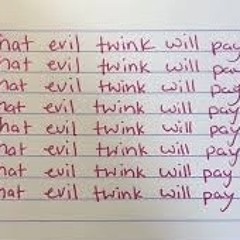 hat evil twink will pay
hat evil twink will pay
hat evil twink will pay
hat evil twink will pay
hat evil twink will pay
hat evil twink will pay
hat evil twink will pay
hat evil twink will pay